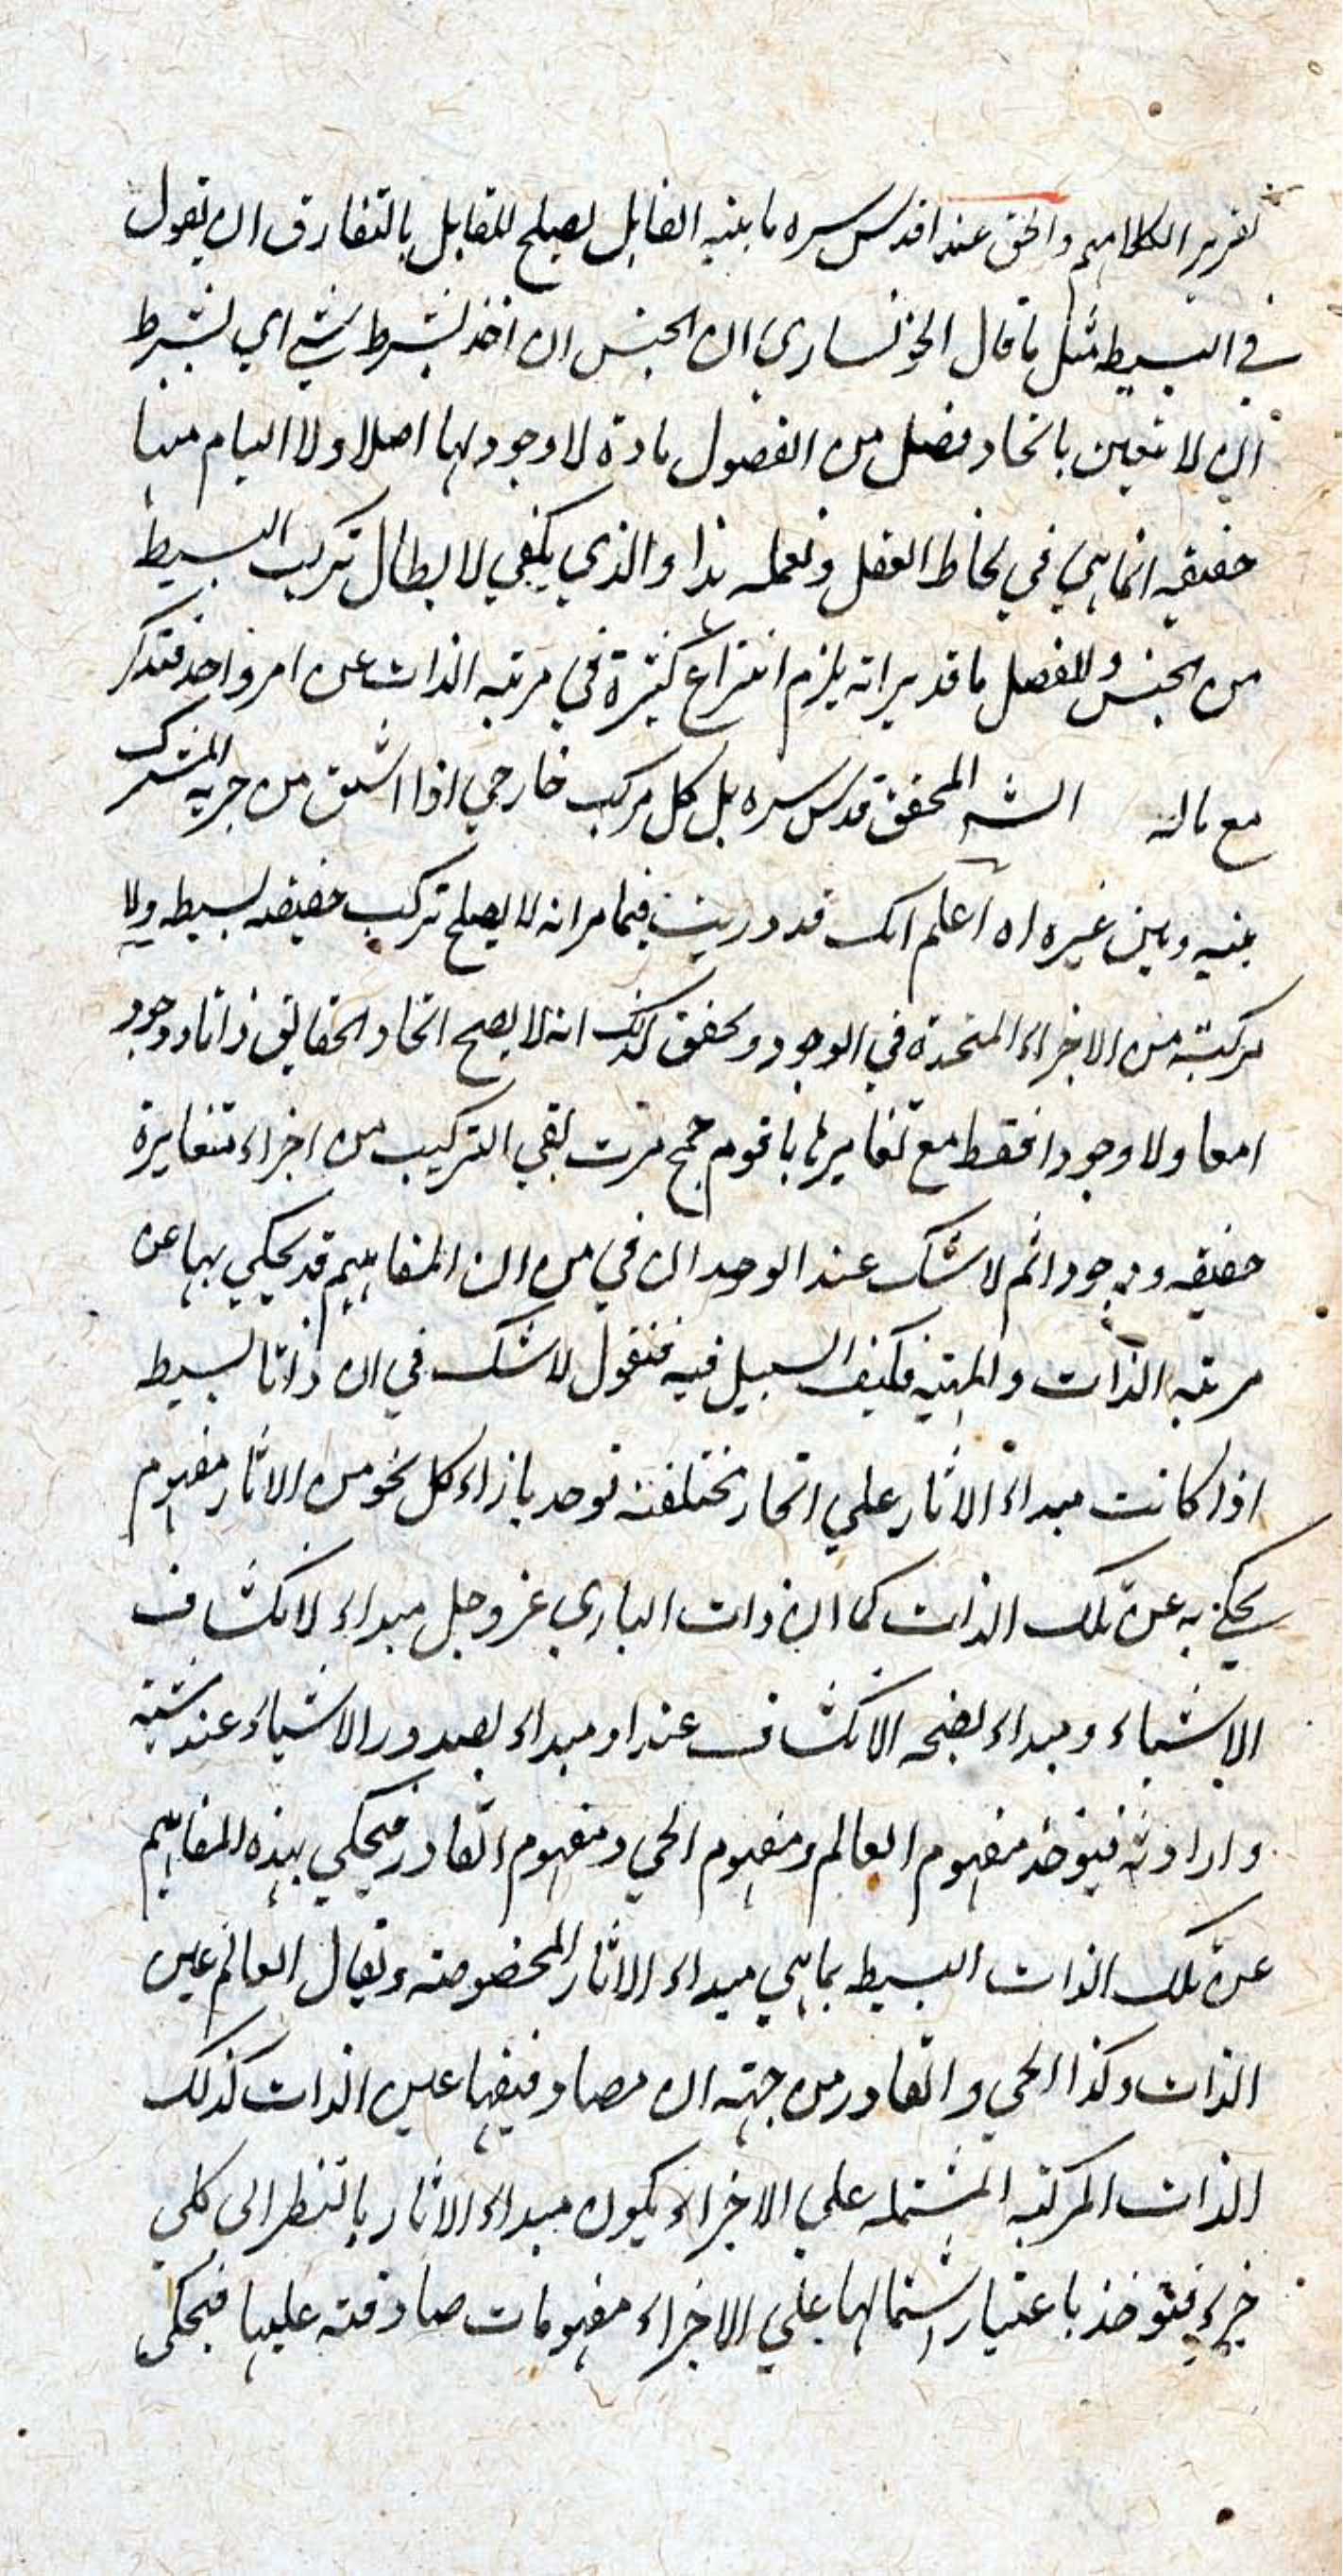 تقرير الكلامهم والحق عندا قدس سره ما بينه القايل يصلح للقايل بالتفارق ان يقول
في البسيطه مثل ما قال الخونساري ان الجنس ان اخذ بشرط شي اي بشرط
ان لا تعين باتحاد فصل من الفصول مادة لا وجود لها اصلا ولا التيام منها
حقيقه انما هي في لحاظ العقل وتعمله هذا والذي يكفي لابطال تركب البسيط
من الجنس والفصل ما قد يرانه يلزم انتزاع كثيرة في مرتبه الذات عن امر واحد فتذكر
مع ماله الشر المحقق قدس سره بل كل مركب خارجي اذا اشتق من جزيه المشترك
بينه وبين غيره اه اعلم انك قد دريت فيما مر انه لا يصلح تركب حقيقه بسيطه ولا
مركبته من الاجزاء المتحدة في الوجود وتحقق كذلك انه لا يصح اتحاد الحقايق ذاتا ووجود
امعا ولا وجودا فقط مع تغايرها باقوم حجج مرت بقي التركيب من اجزاء متغايرة
حقيقه ووجودا ثم لا شك عند الوجدان في من ان المفاهيم قد يحكي بها عن
مرتبه الذات والمهيته فكيف السبيل فيه فنقول لا شك في ان ذاتا بسيط
اذا كانت مبداء الاثار علي انحاء مختلفته توجد بازاء كل نحو من الاثار مفهوم
يحكي به عن تلك الذات كما ان ذات الباري عز وجل مبداء لانكشاف
الاشياء ومبداء لصحه الانكشاف عندا ومبداء لصدور الاشياء عند مشيته
وارادته فيوخذ مفهوم العالم ومفهوم الحي ومفهوم القادر فيحكي بهذه المفاهيم
عن تلك الذات البسيط بما هي مبداء الاثار المخصوصته ويقال العالم عين
الذات وكذا الحي والقادر من جهته ان مصاد فيقها عين الذات كذلك
الذات المركبته المشتمله علي الاجزاء يكون مبداء الاثار بالنظر الى كلي
جزء فتوخذ باعتبار اشتمالها علي الاجزاء مفهومات صادقته عليها فيحكى